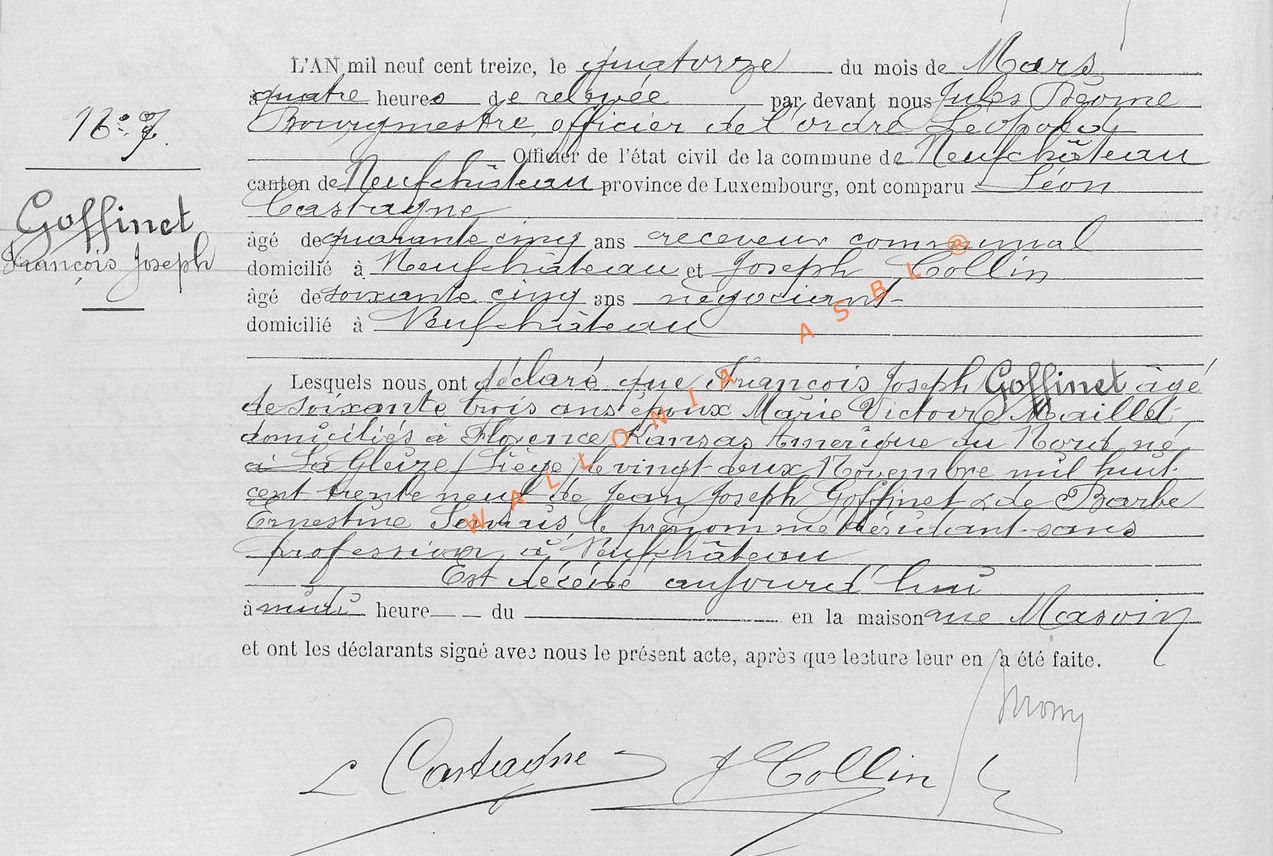 L'AN mil neuf cent treize, le quatorze du mois de Mars
à quatre heures de relevée par devant nous Jules
Bourgmestre, officier de l'ordre Léopold
Officier de l'état civil de la commune de Neufchâteau
canton de Neufchâteau province de Luxembourg, ont comparu Léon
Castagne
âgé de quarante cinq ans receveur communal
domicilié à Neufchâteau et Joseph Collin
âgé de soixante cinq ans négociant
domicilié à Neufchâteau
No. 7.
Goffinet
François Joseph
Lesquels nous ont déclaré que François Joseph Goffinet âgé
de soixante trois ans époux Marie Victoire Maillet,
domiciliés à Florence Kansas Amérique du Nord né
à La Gleize (Liège) le vingt deux Novembre mil huit
cent trente neuf de Jean Joseph Goffinet & de Barbe
Ernestine Servais, le prénommé résidant sans
profession à Neufchâteau
Est décédé aujourd'hui
à midi heure du en la maison rue
et ont les déclarants signé avec nous le présent acte, après que lecture leur en a été faite.
L Castagne J Collin
WALLONIA ASBL ®